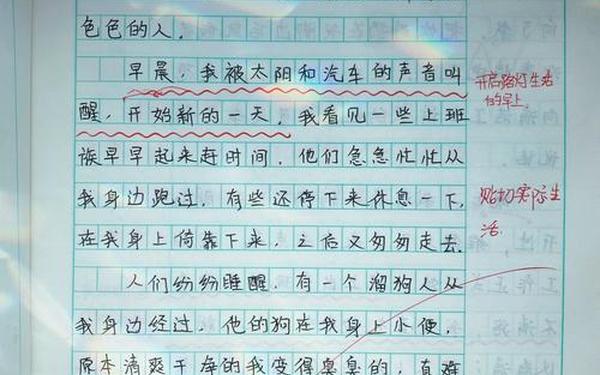 色色的人。
早晨，我被太阳和汽车的声音叫
醒，开始新的一天，我看见一些上班
族早早起来赶时间，他们急急忙忙从
我身边跑过，有些还停下来休息一下，
在我身上倚靠下来，之后又匆匆走去。
人们纷纷睡醒，有一个溜狗人从
我身边经过，他的狗在我身上小便，
原本清爽干净的我变得臭臭的，真难
开启路灯生活
的早上。
贴切实际生
活。